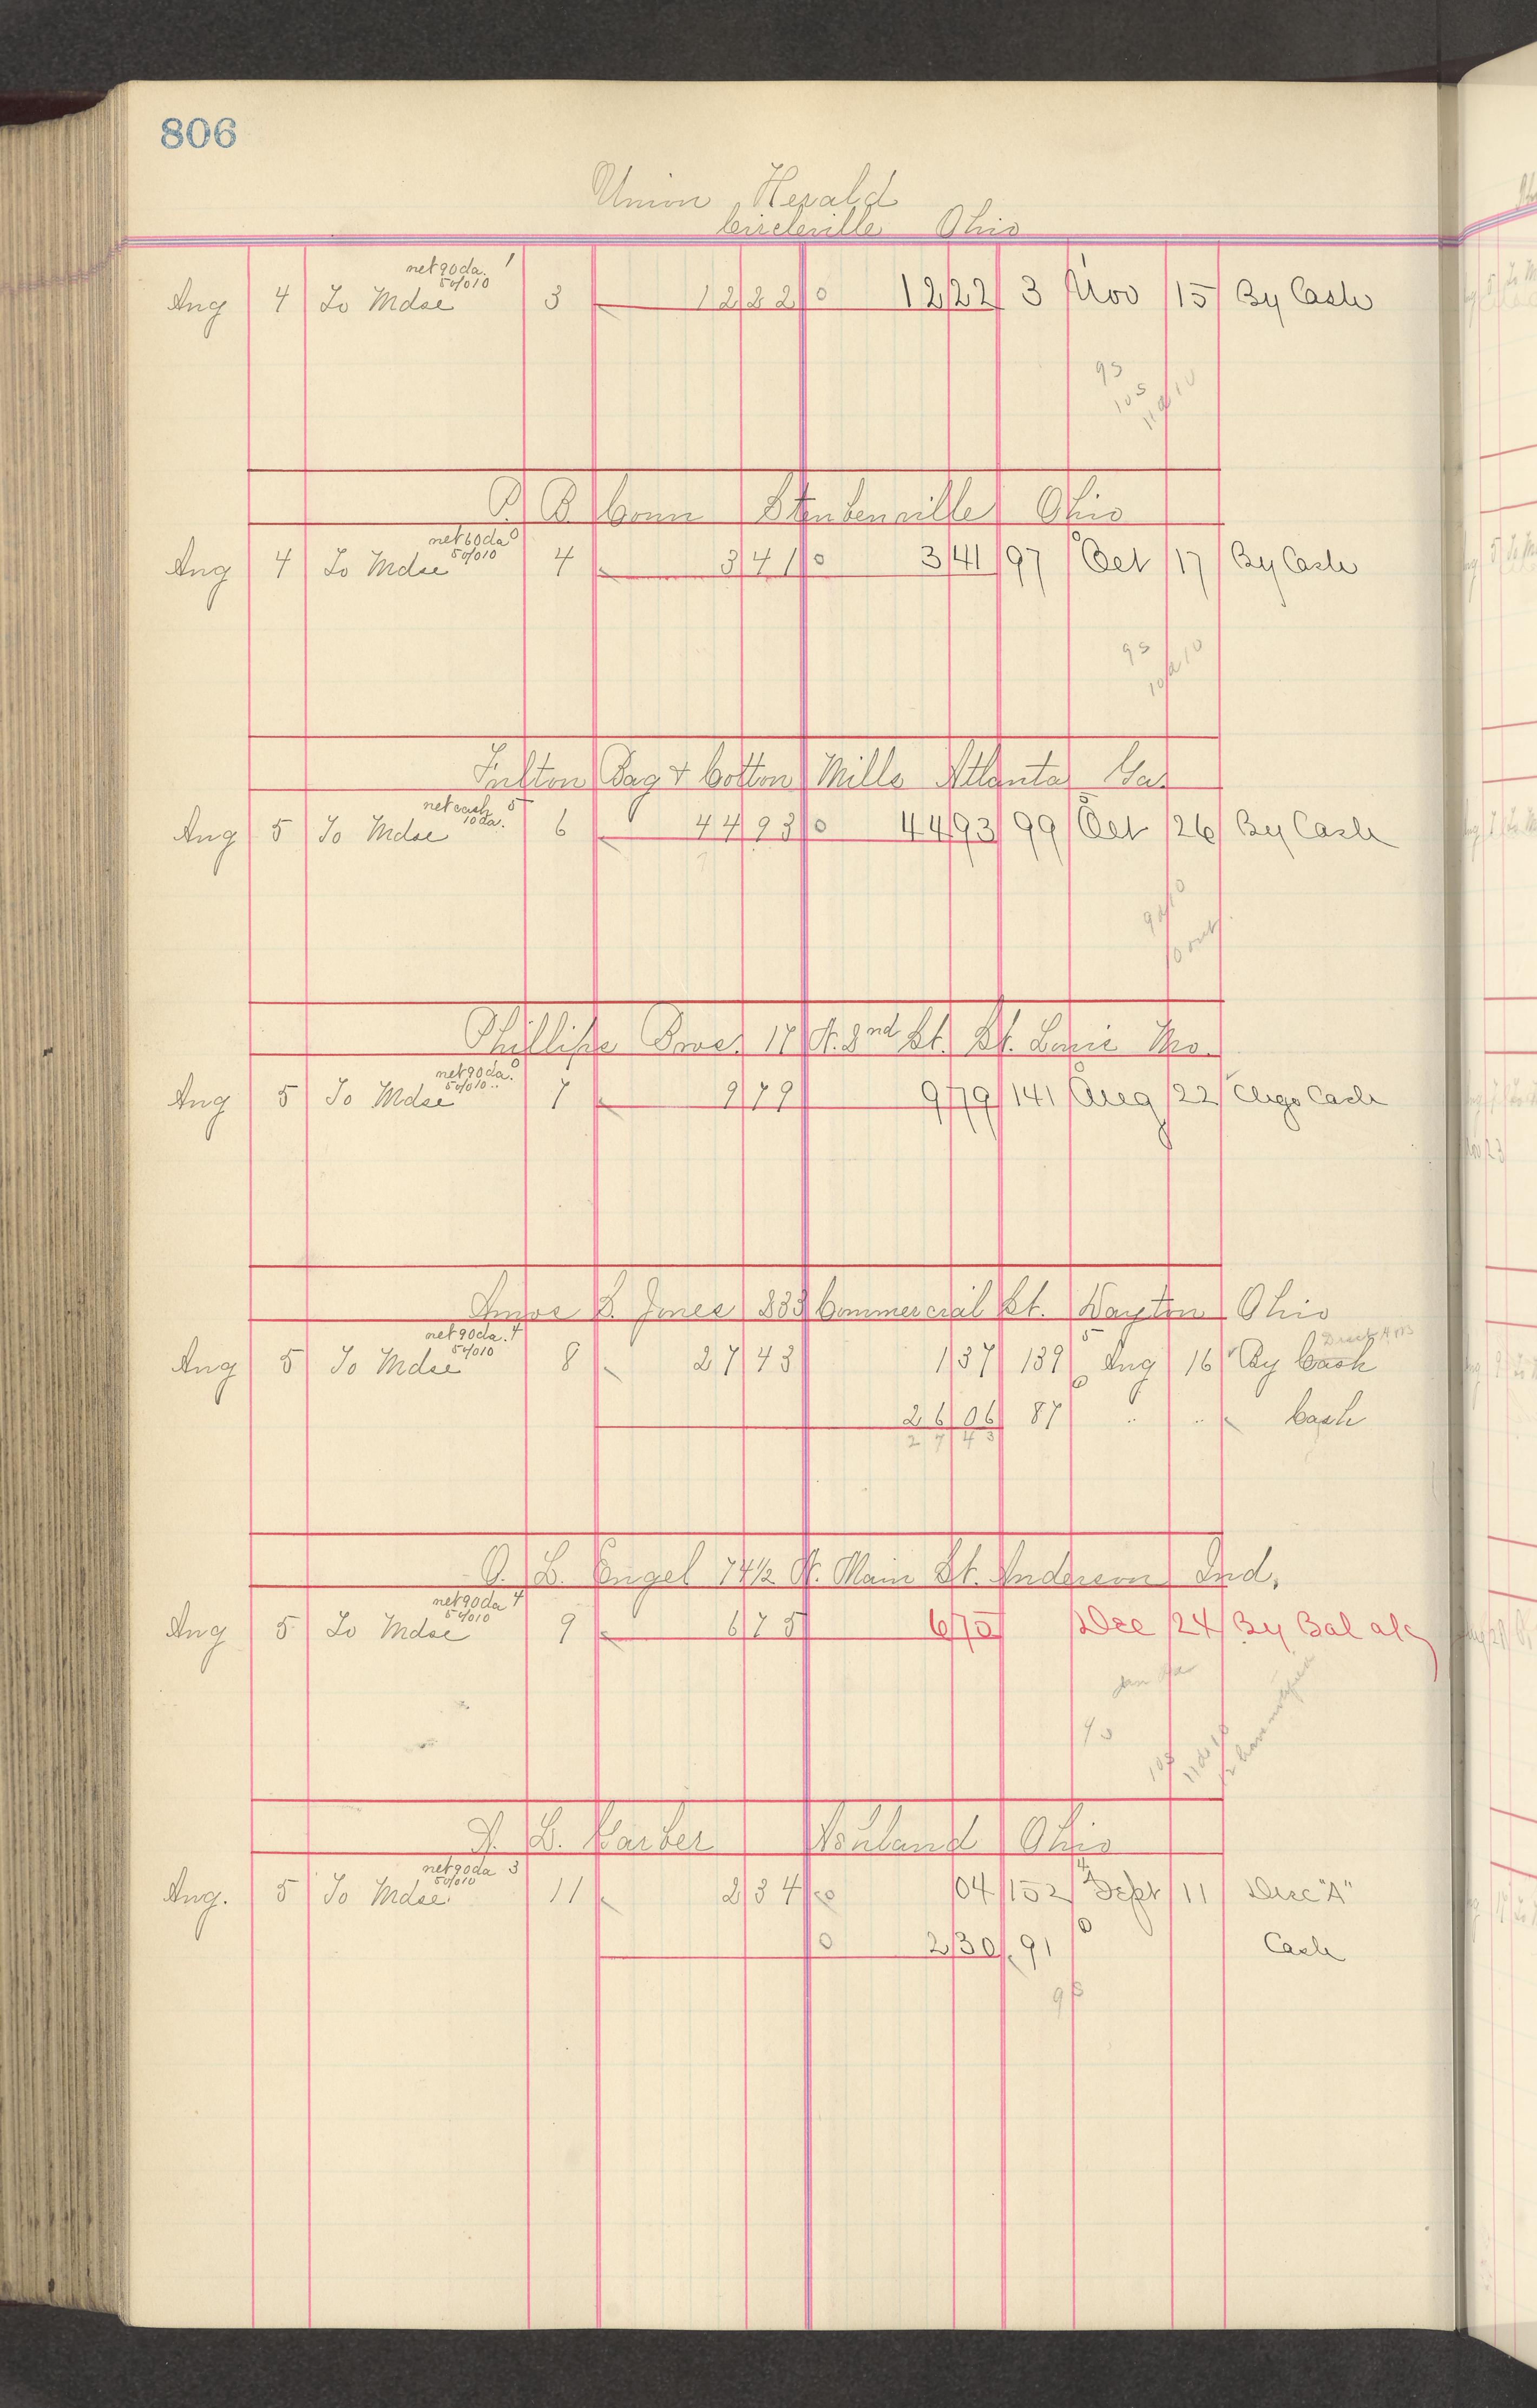 806
Union Herald
Circleville Ohio
net 90 da. 1
5%10
Aug 4 To Mdse 3 12 22 0 12 22 3 Nov 15 By Cash
9 5
10 5
11 a 10
P. B. Conn Steubenville Ohio
net 60 da 0
5%10
Aug 4 To Mdse 4 3 41 0 3 41 97 Oct 17 By Cash
9 5
10 a 10
Fulton Bag & Cotton Mills Atlanta Ga.
net cash 5
10 da.
Aug 5 To Mdse 6 44 93 0 44 93 99 Oct 26 By Cash
Phillips Bros. 17 N. 2nd St. St. Louis Mo.
net 90 da. 0
5%10
Aug 5 To Mdse 7 9 79 9 79 141 Aug 22 Chgo Cash
Amos S. Jones 833 Commercial St. Dayton Ohio
net 90 da. 4
5%10
Aug 5 To Mdse 8 27 43 1 37 139 Aug 16 By Cash
26 06 87 " " Cash
27 43
O. L. Engel 74½ N. Main St. Anderson Ind.
net 90 da 4
5%10
Aug 5 To Mdse 9 6 75 6 75 Dec 24 By Bal a/c
12 have notified
D. L. Garber Ashland Ohio
net 90 da 3
5%10
Aug. 5 To Mdse. 11 2 34 04 152 Sept 11 Disc "A"
0 2 30 91 0 Cash
9 5